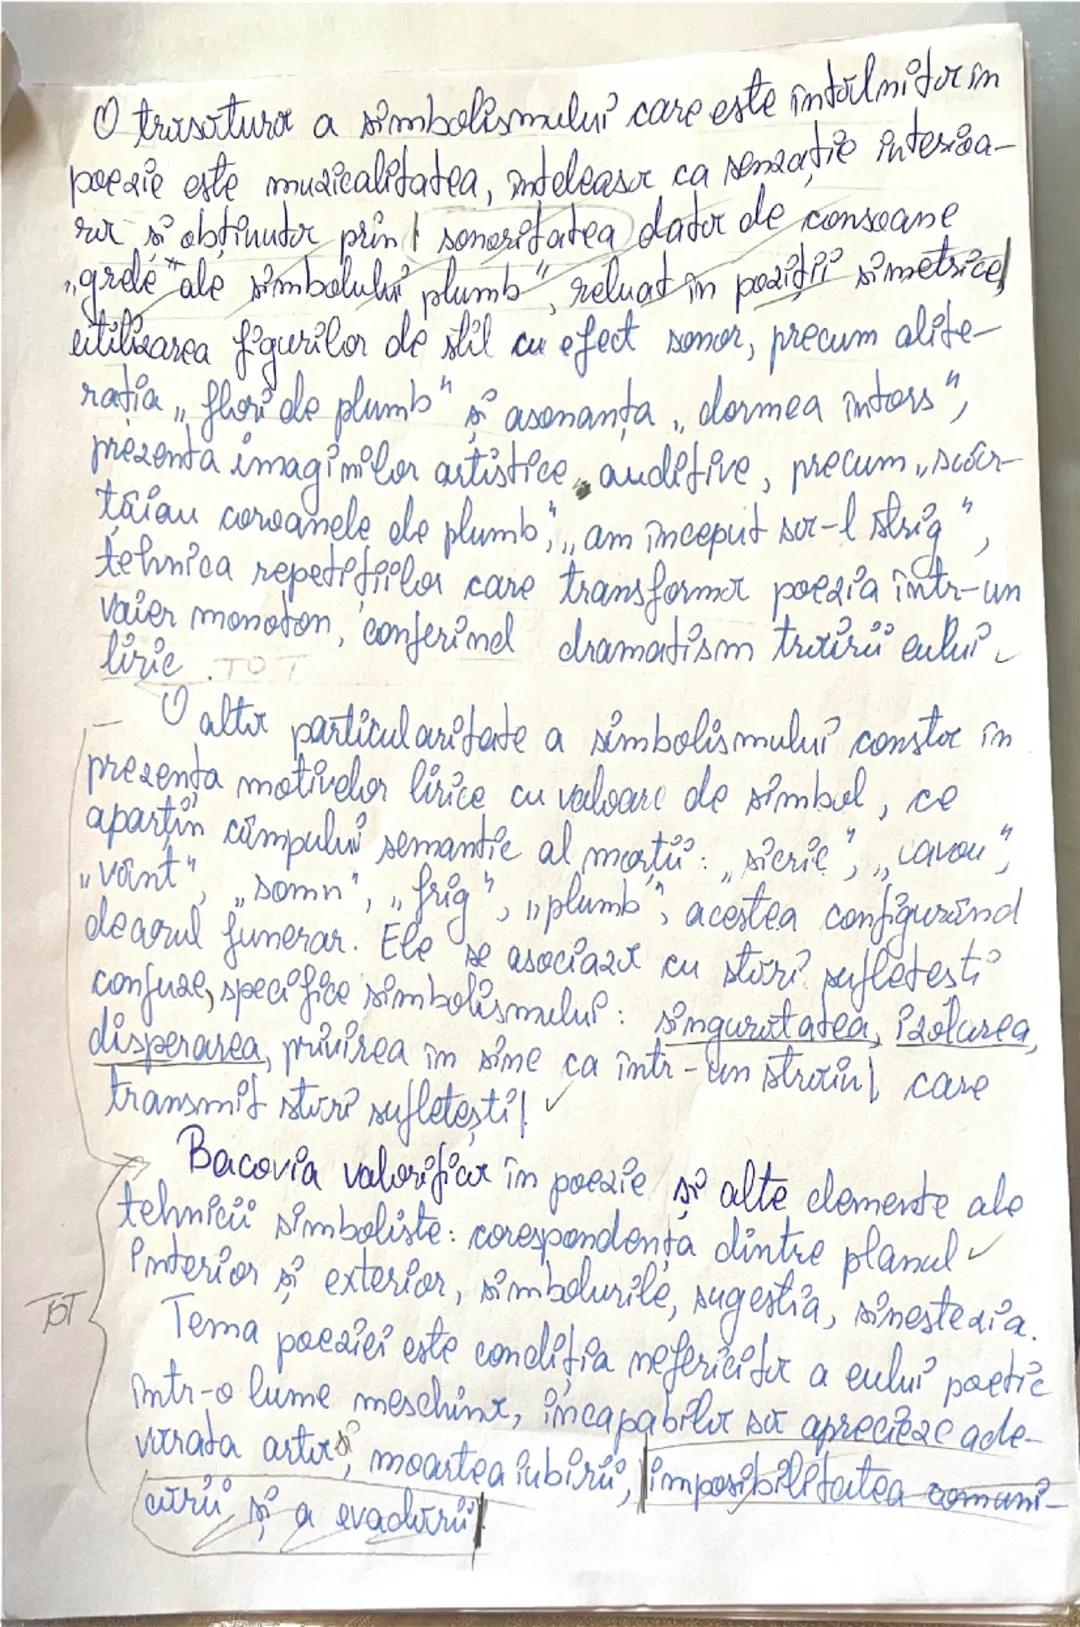 O trăsătură a simbolismului care este întâlnită în
poezie este muzicalitatea, înțeleasă ca senzație interioa-
ră și obținută prin sonoritatea dată de consoane
„grele" ale simbolului plumb", reluat în poziții simetrice,
utilizarea figurilor de stil cu efect sonor, precum alite-
rația „flori de plumb" și asonanța „dormea întors",
prezența imaginilor artistice auditive, precum „scâr-
țâiau coroanele de plumb", „am început să-l strig",
tehnica repetițiilor care transformă poezia într-un
vaier monoton, conferind dramatism trăirii eului
liric. TOT
O altă particularitate a simbolismului constă în
prezența motivelor lirice cu valoare de simbol, ce
aparțin câmpului semantic al morții: „sicrie", „cavou",
„vânt", „somn", „frig", „plumb", acestea configurând
decorul funerar. Ele se asociază cu stări sufletești
confuze, specifice simbolismului: singurătatea, izolarea,
disperarea, privirea în sine ca într-un străin, care
transmit stări sufletești.
Bacovia valorifică în poezie și alte elemente ale
tehnicii simboliste: corespondența dintre planul
interior și exterior, simbolurile, sugestia, sinestezia.
TOT
Tema poeziei este condiția nefericită a eului poetic
într-o lume meschină, incapabilă să aprecieze ade-
vărata artă și moartea iubirii, imposibilitatea comuni-
cării și a evadării.